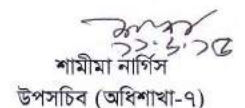 শামীমা নার্গিস
উপসচিব (অধিশাখা-৭)